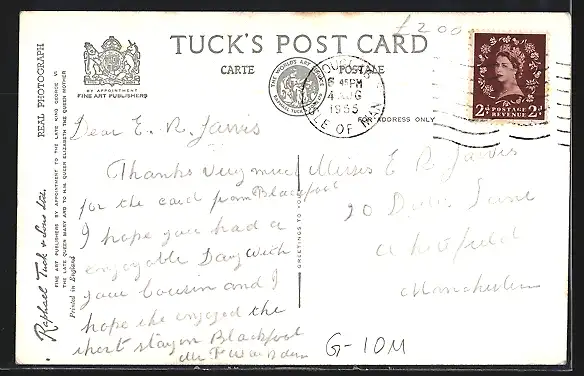 £200
TUCK'S POST CARD
CARTE POSTALE
BY APPOINTMENT
FINE ART PUBLISHERS
REAL PHOTOGRAPH
FINE ART PUBLISHERS BY APPOINTMENT TO THE LATE KING GEORGE VI
THE LATE QUEEN MARY AND TO H.M. QUEEN ELIZABETH THE QUEEN MOTHER
Raphael Tuck & Sons Ltd.
Printed in England
THE WORLD'S ART SERVICE
DOUGLAS
6 45PM
4 AUG
1955
ISLE OF MAN
2D POSTAGE REVENUE 2D
FOR ADDRESS ONLY
GREETINGS TO YOU
Dear E. R. Jarvis
Thanks very much
for the card from Blackpool
I hope you had a
enjoyable Day with
your Cousin and I
hope she enjoyed the
short stay in Blackpool
Mr F
Misses E R Jarvis
20 Lane
Manchester
G-10M